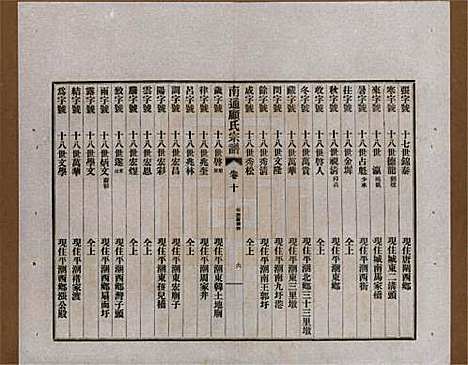 張字號 十七世錦泰 現住唐閘西鄉
寒字號 十八世德龍 現住城東二溝頭
來字號 十八世瀛 現住城南馬家橋
暑字號 十八世占魁
往字號 十八世金堀
秋字號 十八世視清 現住平潮東鄉
收字號 十八世啓人 仝上
冬字號 十八世萬賞 現住平潮北鄉三十三里墩
藏字號 十八世萬華 現住平潮東三里墩
閏字號 十八世文隆 現住平潮南九圩港
餘字號 十八世秀清 現住平潮南王郭圩
成字號 十八世秀松 仝上
南通顧氏宗譜 卷十
六
歲字號 十八世啓 現住平潮東韓土地廟
律字號 十八世兆奎 現住平潮周家井
呂字號 十八世兆林 仝上
調字號 十八世宏昌 現住平潮東宏廟子
陽字號 十八世宏彩 現住平潮東孩兒橋
雲字號 十八世宏恩 仝上
騰字號 十八世宏煜 仝上
致字號 十八世遂 現住平潮西鄉灣子頭
雨字號 十八世炳文 現住平潮西鄉扇面圩
露字號 十八世學文 仝上
結字號 十八世萬華 現住平潮褚家渡
爲字號 十八世文學 現住平潮西鄉張公殿